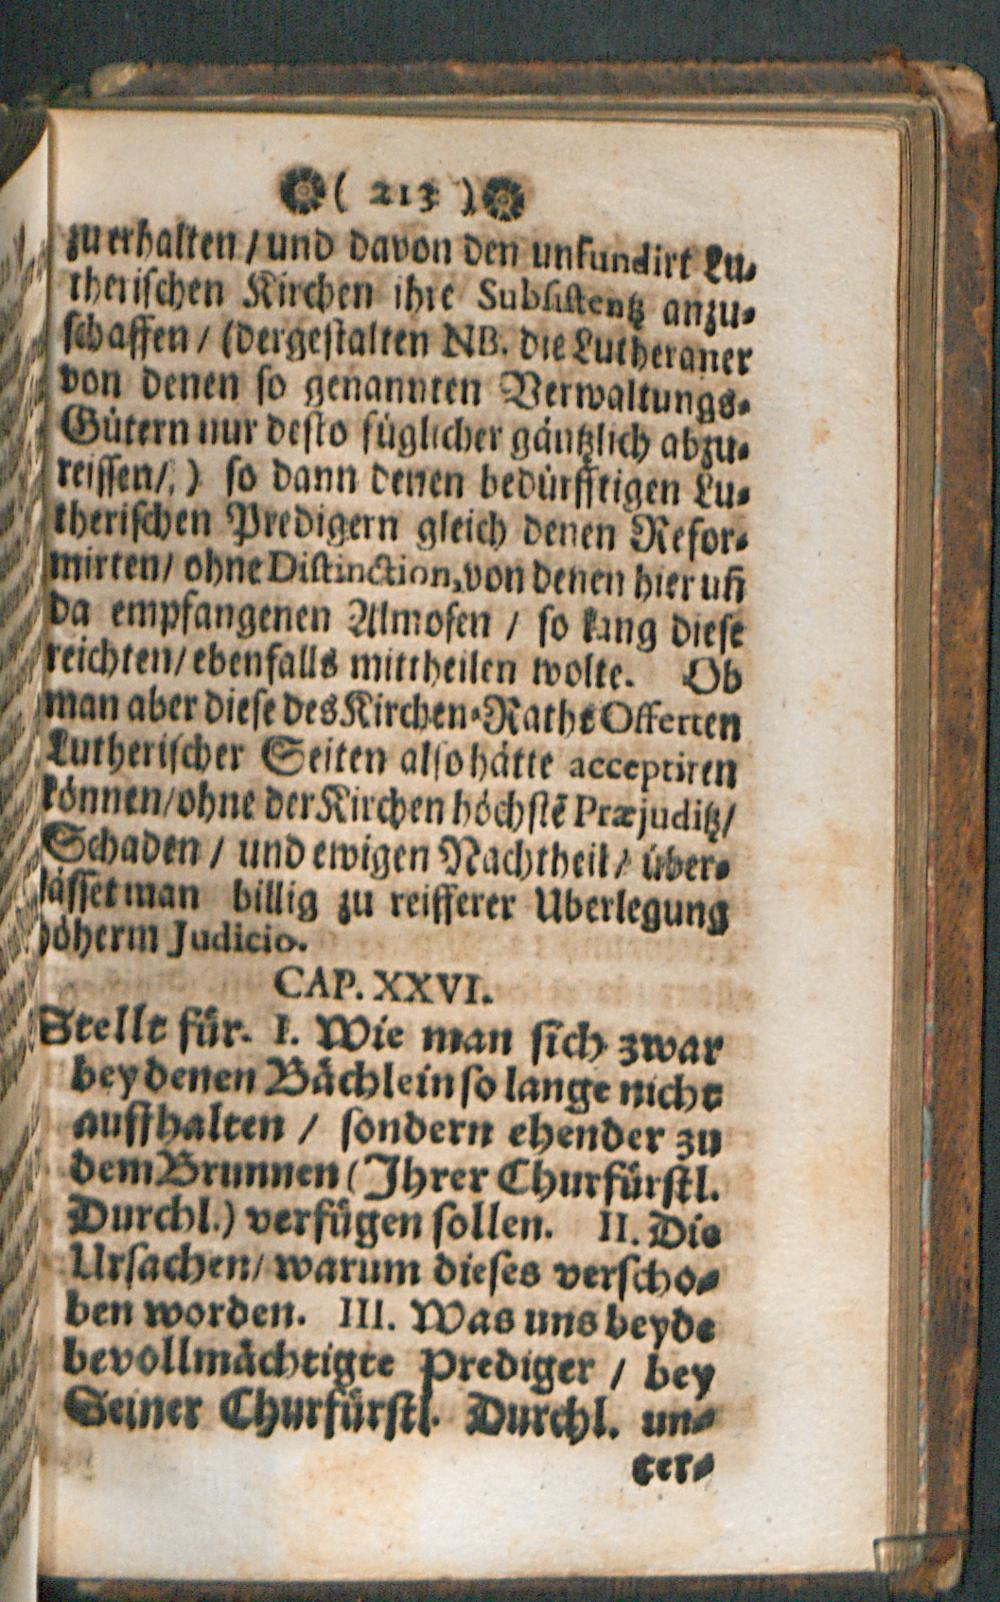 ( 213 )
zu erhalten / und davon den unfundirt Lu-
therischen Kirchen ihre Subsistentz anzu-
schaffen / (dergestalten NB. die Lutheraner
von denen so genannten Verwaltungs-
Gütern nur desto füglicher gäntzlich abzu-
reissen/) so dann denen bedürfftigen Lu-
therischen Predigern gleich denen Refor-
mirten/ ohne Distinction, von denen hier uñ
da empfangenen Almosen / so lang diese
reichten/ ebenfalls mittheilen wolte. Ob
man aber diese des Kirchen-Raths Offerten
Lutherischer Seiten also hätte acceptiren
können/ ohne der Kirchen höchstē Præjuditz/
Schaden / und ewigen Nachtheil / über-
lässet man billig zu reifferer Uberlegung
höherm Judicio.
CAP. XXVI.
Stellt für. I. Wie man sich zwar
bey denen Bächlein so lange nicht
auffhalten / sondern ehender zu
dem Brunnen (Ihrer Churfürstl.
Durchl.) verfügen sollen. II. Die
Ursachen/ warum dieses verscho-
ben worden. III. Was uns beyde
bevollmächtigte Prediger / bey
Seiner Churfürstl. Durchl. un-
ter-